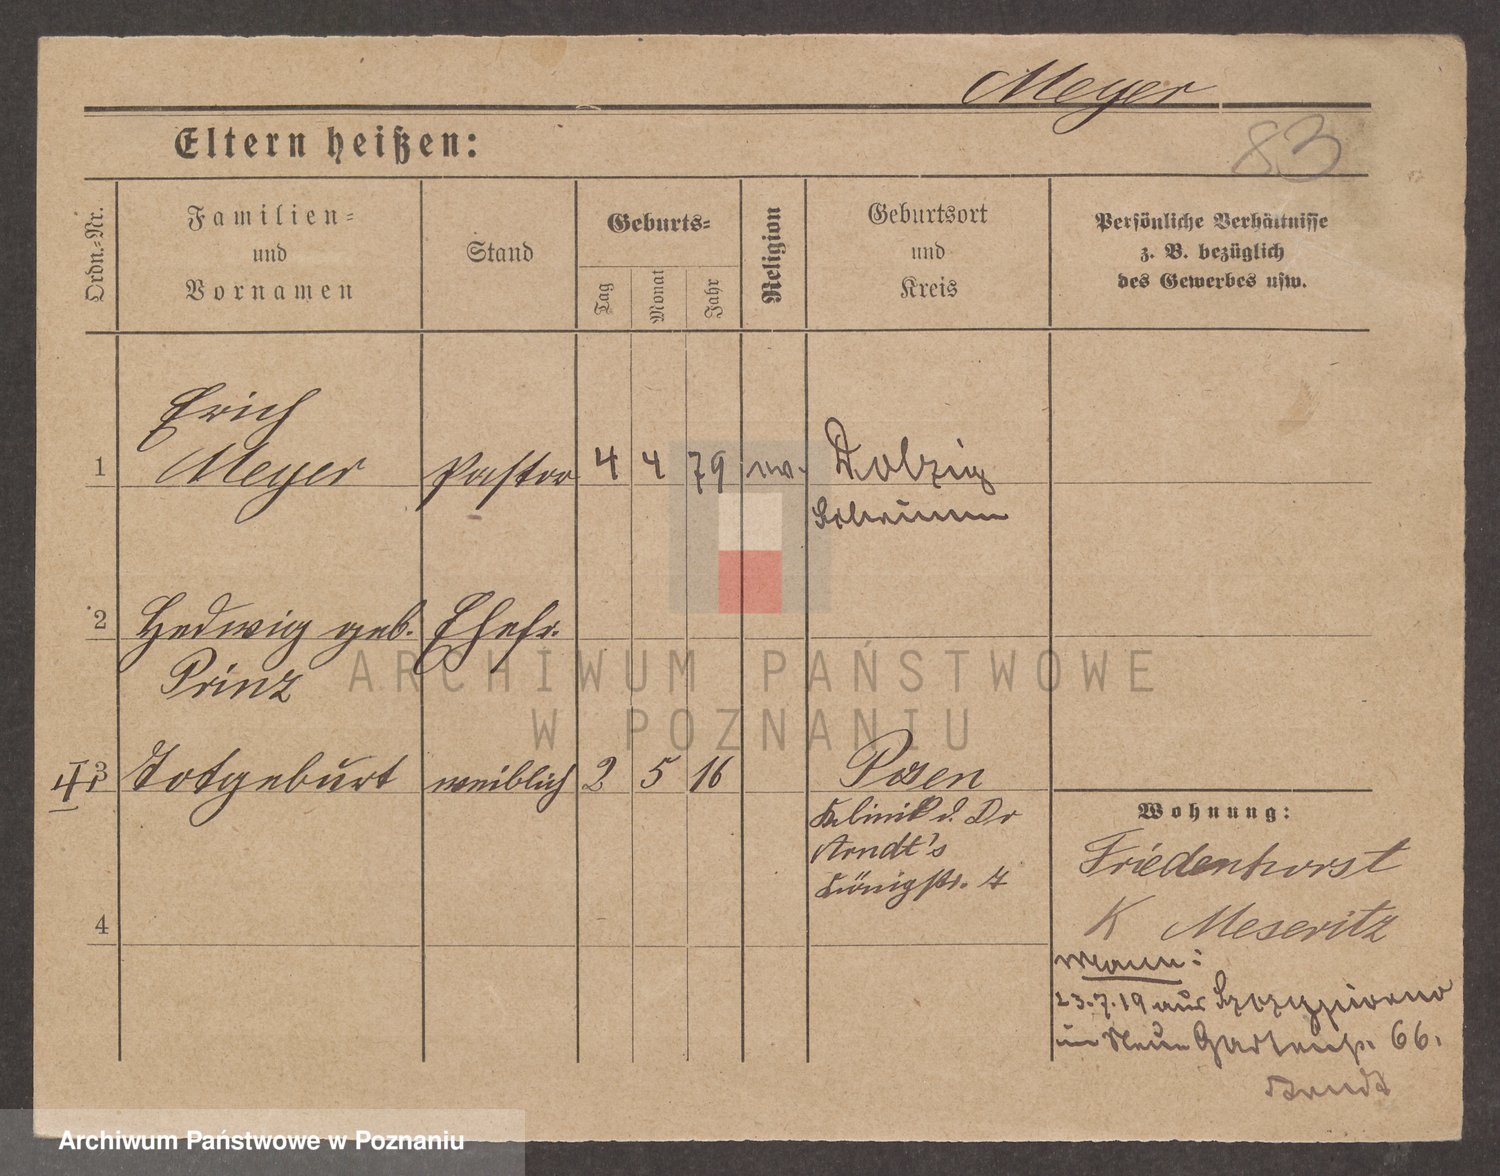 Meyer
83
Eltern heißen:
Ordn.-Nr.
Familien-
und
Vornamen
Stand
Geburts-
Tag
Monat
Jahr
Religion
Geburtsort
und
Kreis
Persönliche Verhältnisse
z. B. bezüglich
des Gewerbes usw.
Erich
1 Meyer Pastor 4 4 79 ev. Dolzig
Schrimm
2 Hedwig geb. Ehefr.
Prinz
3 Totgeburt weiblich 2 5 16 Posen
Klinik d. Dr
Arndt's
Königstr. 7
4
Wohnung:
Friedenhorst
K Meseritz
Mann:
23.7.19 aus Szczypiorno
in Neue Gartenstr. 66.
ARCHIWUM PAŃSTWOWE
W POZNANIU
Archiwum Państwowe w Poznaniu